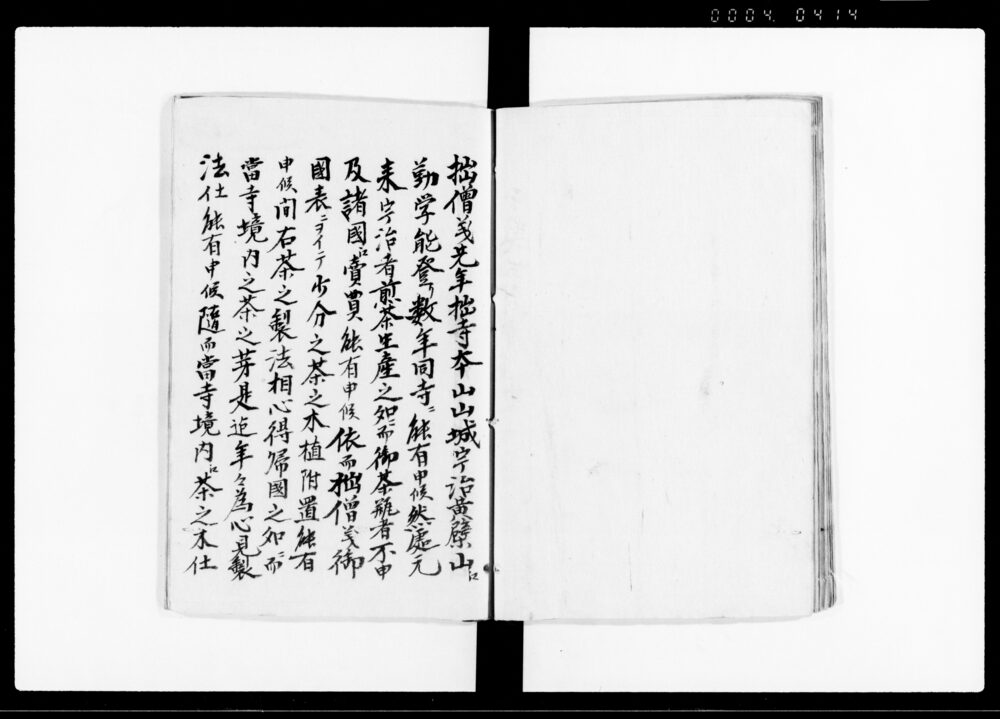 0004 0414
拙僧義先年拙寺本山山城宇治黄檗山江
勤学能登リ数年同寺ニ能有申候然處元
来宇治者煎茶生産之如ニ而御茶瓶者不申
及諸國江賣買能有申候依而拙僧義御
國表ニヨイテ少分之茶之木植附置能有
申候間右茶之製法相心得帰國之如ニ而
當寺境内之茶之芽是迄年々為心見製
法仕能有申候随而當寺境内江茶之木仕